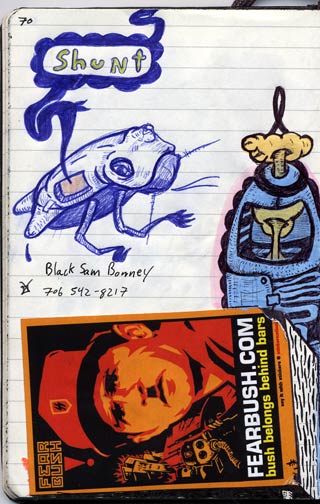 70
Shunt
Black Sam Bonney
706 542-8217
FEAR
BUSH
FEARBUSH.COM
bush belongs behind bars